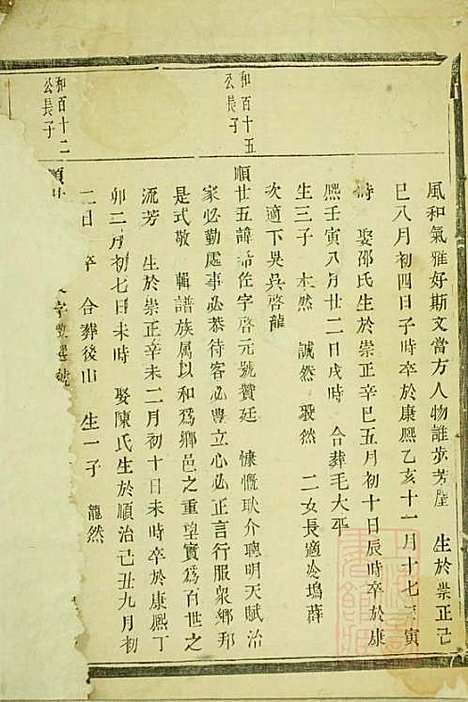 風和氣雅好斯文當方人物誰步芳塵 生於崇正己
巳八月初四日子時卒於康熙乙亥十一月十七日寅
時 娶邵氏生於崇正辛巳五月初十日辰時卒於康
熙壬寅八月廿二日戌時 合葬毛大平
生三子 本然 誠然 發然 二女長適塢薛
次適下吳吳啓龍
和百十五
公長子
順廿五諱希佐字啓元號贊廷 慷慨耿介聰明天賦治
家必勤處事必恭待客必豊立心必正言行服眾鄉邦
是式敬 輯譜族属以和爲鄉邑之重望實爲百世之
流芳 生於崇正辛未二月初十日未時卒於康熙丁
卯二月初七日未時 娶陳氏生於順治己丑九月初
二日 卒 合葬後山 生一子 龍然
和百十二
公長子
順廿